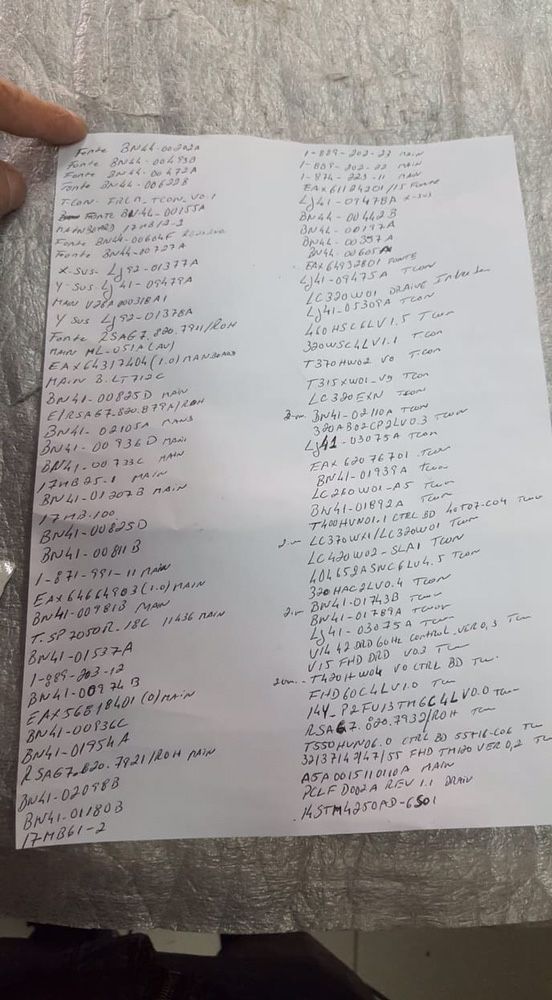 Fonte BN44-00202A
Fonte BN44-00493B
Fonte BN44-00472A
Fonte BN44-00622B
T.CON- FRCM_TCON_V0.1
FONTE BN44-00155A
MAINBOARD 17MB12-2
Fonte BN44-00604F
Fonte BN44-00727A
X-SUS- Lj92-01377A
Y-SUS- Lj41-09479A
MAIN V28A000318A1
Y SUS Lj92-01378A
Fonte RSAG7.820.7911/ROH
MAIN ML-051A(AV)
EAX64317404(1.0) MAINBOARD
MAIN B.LT712C
BN41-00825D MAIN
E/RSAG7.820.879A/ROH
BN41-02105A MAIN
BN41-00936D MAIN
BN41-00733C MAIN
17MB25-1 MAIN
BN41-01207B MAIN
17MB-100
BN41-00825D
BN41-00811B
1-871-991-11 MAIN
EAX64664903(1.0) MAIN
BN41-00981B MAIN
T.SP7050R-18C 11436 MAIN
BN41-01537A
1-889-203-12
BN41-00974B
EAX56818401(0) MAIN
BN41-00936C
BN41-01954A
RSAG7.820.7921/ROH MAIN
BN41-02098B
BN41-01180B
17MB61-2
1-889-202-23 MAIN
1-889-202-22 MAIN
1-874-223-11 MAIN
EAX61124201/15 FONTE
Lj41-09478A X-SUS
BN44-00442B
BN44-00197A
BN44-00357A
BN44-00605A
EAX64932801 FONTE
Lj41-09475A TCON
LC320W01 DRAINE
Lj41-05309A TCON
460HSC6LV1.5 TCON
320WSC4LV1.1 TCON
T370HW02 V0 TCON
T315XW01-V9 TCON
LC320EXN TCON
BN41-02110A TCON
320AB02CP2LV0.3 TCON
Lj41-03075A TCON
EAX62076701 TCON
BN41-01939A TCON
LC260W01-A5 TCON
BN41-01892A TCON
T400HVN01.1 CTRL BD 40T07-C04 TCON
LC370WX1/LC320W01 TCON
LC420W02-SLA1 TCON
404652ASNC6LV4.5 TCON
320HAC2LV0.4 TCON
BN41-01743B TCON
BN41-01789A TCON
Lj41-03075A TCON
V1442DRD60Hz Control.VER0,3 TCON
V15 FHD DRD V0.2 TCON
T420HW04 V0 CTRL BD TCON
FHD60C4LV1.0 TCON
14Y_P2FU13TMGC4LV0.0 TCON
RSAG7.820.7932/ROH TCON
T550HVN06.0 CTRL BD 55T16-C06 TCON
32/37/42/47/55 FHD TM120 VER 0,2 TCON
A5A0015110110A MAIN
PCLF D002A REV 1.1 DRAIN
14STM4250AD-6S01